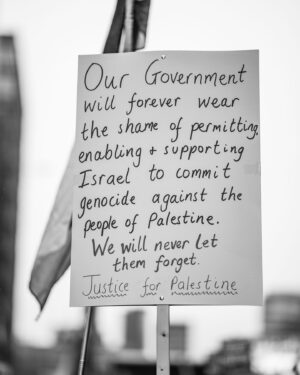 Our Government
will forever wear
the shame of permitting,
enabling + supporting
Israel to commit
genocide against the
people of Palestine.
We will never let
them forget.
Justice for Palestine